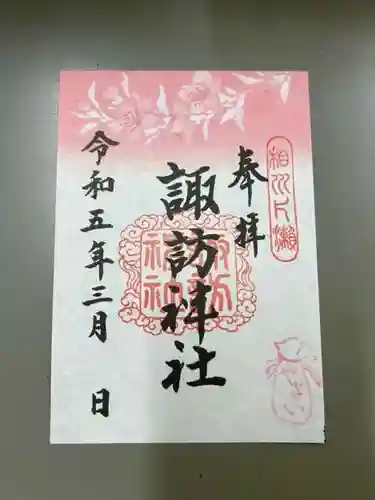 奉拝
諏訪神社
令和五年三月 日
諏訪神社